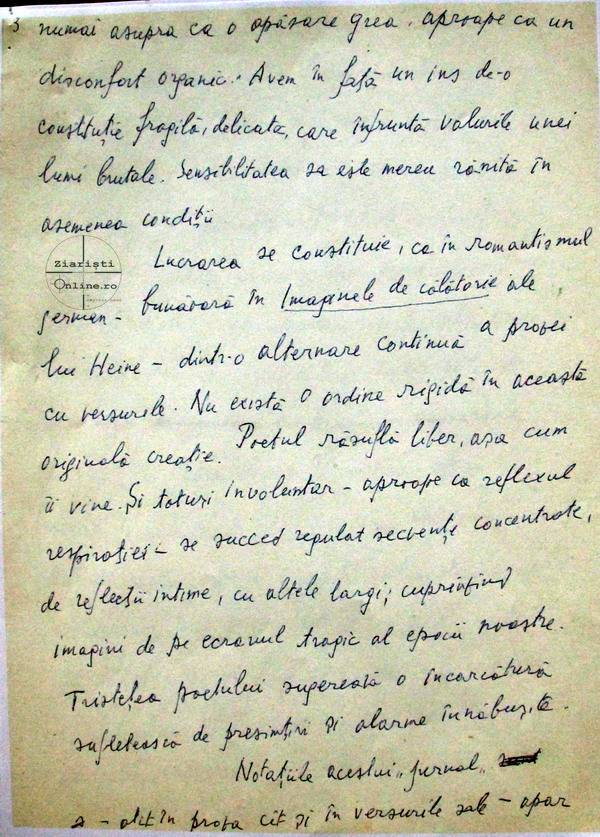 3 numai asupra ca o apăsare grea, aproape ca un
disconfort organic. Avem în față un ins de-o
constituție fragilă, delicată, care înfruntă valurile unei
lumi brutale. Sensibilitatea sa este mereu rănită în
asemenea condiții.
Lucrarea se constituie, ca în romantismul
Ziariști
Online.ro
german - bunăoară în Imaginele de călătorie ale
lui Heine - dintr-o alternare continuă a prozei
cu versurile. Nu există o ordine rigidă în această
originală creație. Poetul răsuflă liber, așa cum
îi vine. Și totuși involuntar - aproape ca reflexul
respirației - se succed regulat secvențe concentrate,
de reflecții intime, cu altele largi, cuprinzînd
imagini de pe ecranul tragic al epocii noastre.
Tristețea poetului sugerează o încărcătură
sufletească de presimțiri și alarme înnăbușite.
Notațiile acestui „jurnal„
- atît în proza cît și în versurile sale - apar